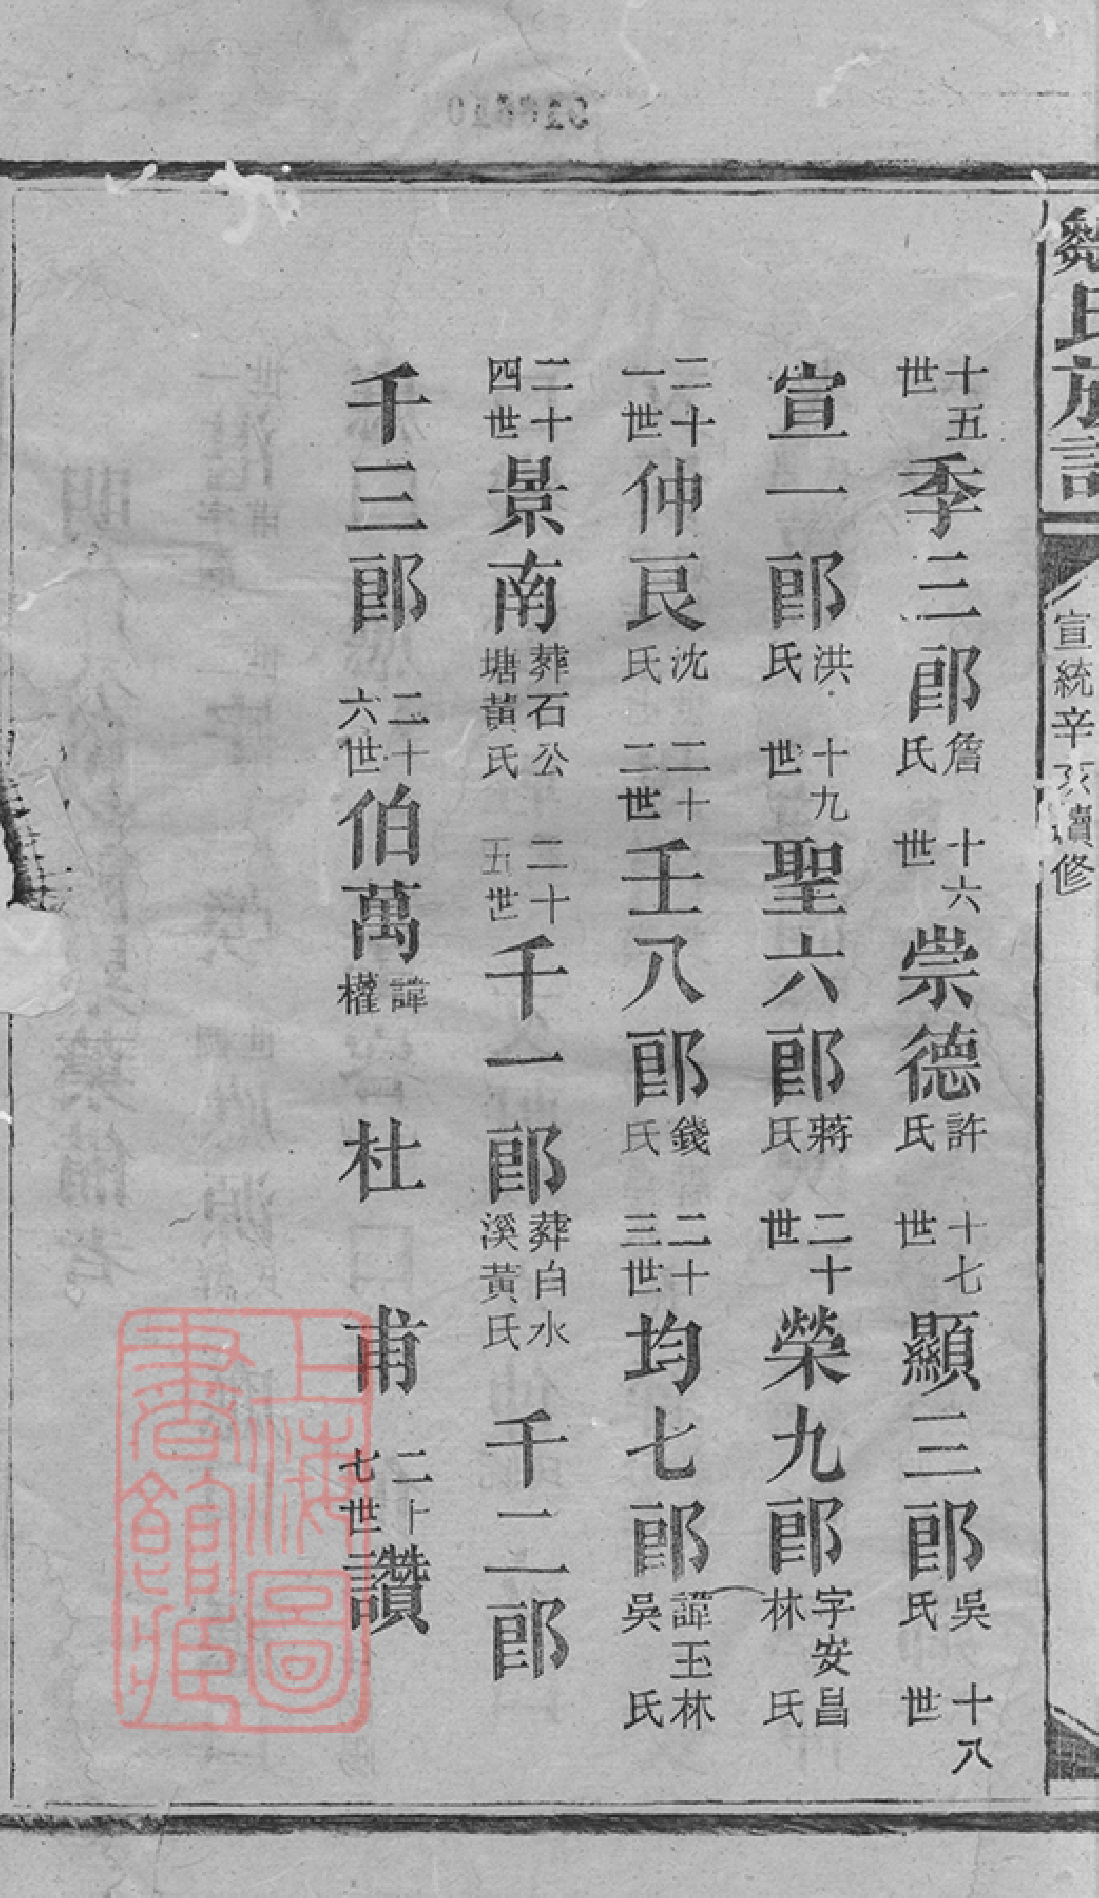 氏族譜
宣統辛亥續修
十五世季三郎詹氏十六世崇德許氏十七世顯三郎吳氏十八世
宣一郎洪氏十九世聖六郎蔣氏二十世榮九郎字安昌林氏
二十一世仲良沈氏二十二世壬八郎錢氏二十三世均七郎諱玉林吳氏
二十四世景南葬石公塘黃氏二十五世千一郎葬白水溪黃氏千二郎
千三郎二十六世伯萬諱權杜甫二十七世讚
上海圖書館藏